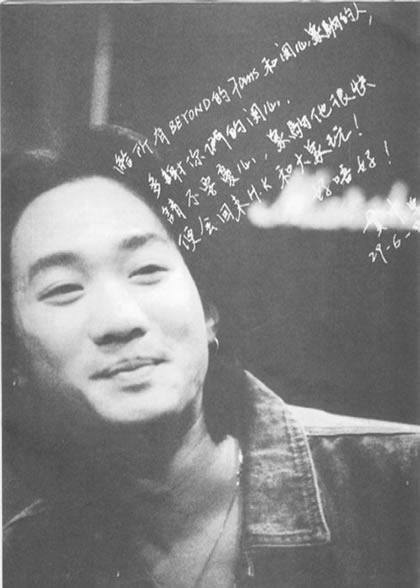 給所有BEYOND的fans和關心家駒的人,
多謝你們的關心.
請不要憂心, 家駒他很快
便会回来H.K和大家玩!
好唔好!
29-6-